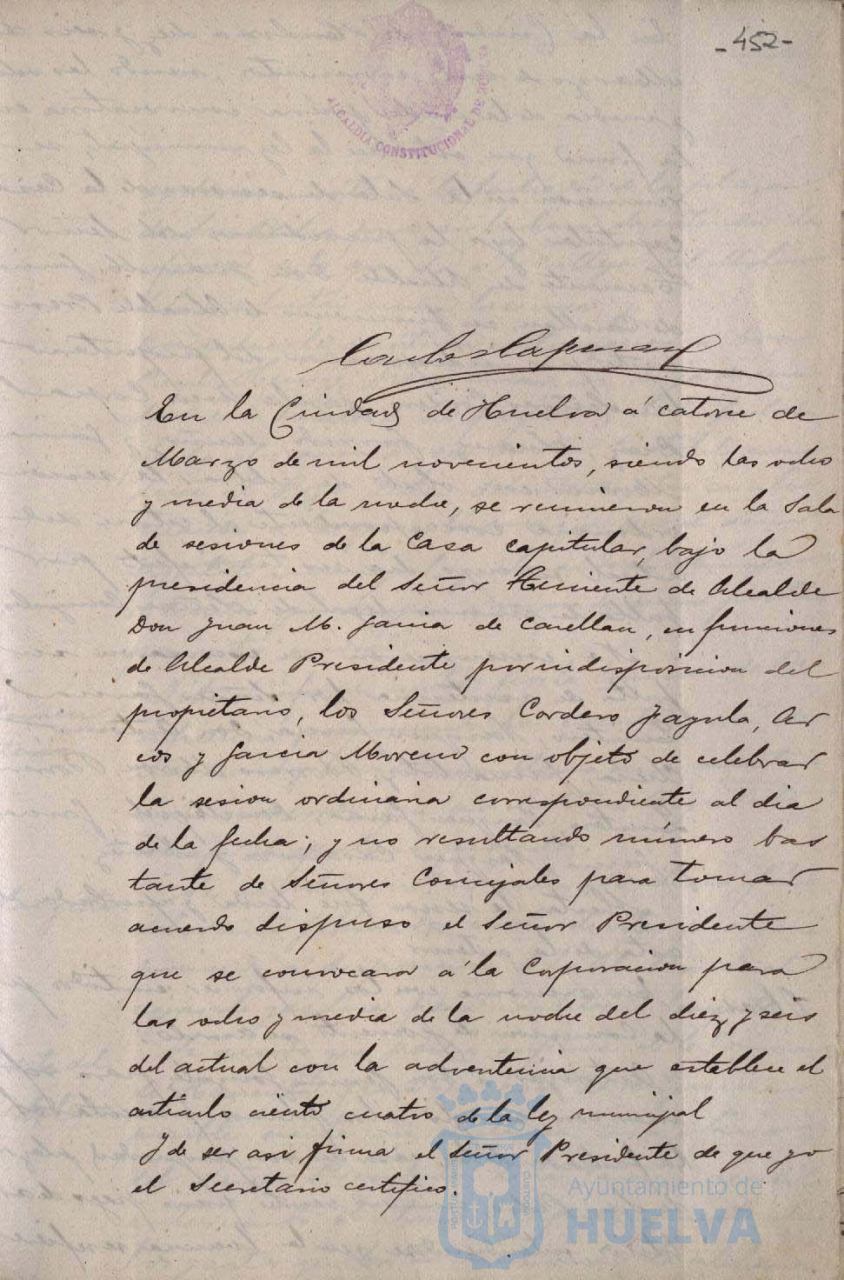 -452-
ALCALDIA CONSTITUCIONAL DE HUELVA
En la Ciudad de Huelva á catorce de
Marzo de mil novecientos, siendo las ocho
y media de la noche, se reunieron en la Sala
de sesiones de la Casa capitular, bajo la
presidencia del Señor Teniente de Alcalde
Don Juan M. Garcia de Casellan, en funciones
de Alcalde Presidente por indisposicion del
propietario, los Señores Cordero, Zayula, Ar
cos y Garcia Moreno con objeto de celebrar
la sesion ordinaria correspondiente al dia
de la fecha; y no resultando número bas
tante de Señores Concejales para tomar
acuerdo dispuso el Señor Presidente
que se convocara á la Corporacion para
las ocho y media de la noche del diez y seis
del actual con la advertencia que establece el
articulo ciento cuatro de la ley municipal
Y de ser asi firma el Señor Presidente de que yo
el Secretario certifico.
Ayuntamiento de
HUELVA